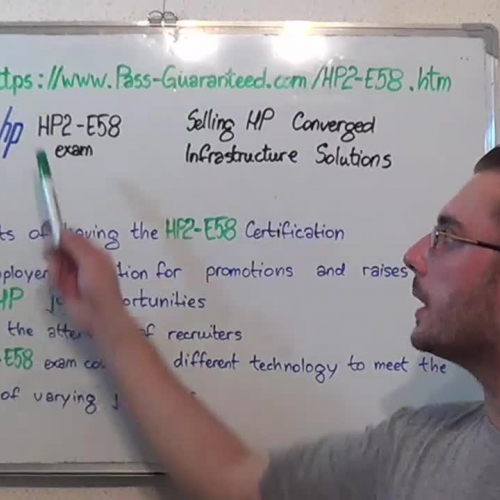 ttps://www.Pass-Guaranteed.com/HP2-E58.htm
hp HP2-E58 Selling HP Converged
exam Infrastructure Solutions
the HP2-E58 Certification
for promotions and raises
HP
the of recruiters
E58 exam different technology to meet the
of varying